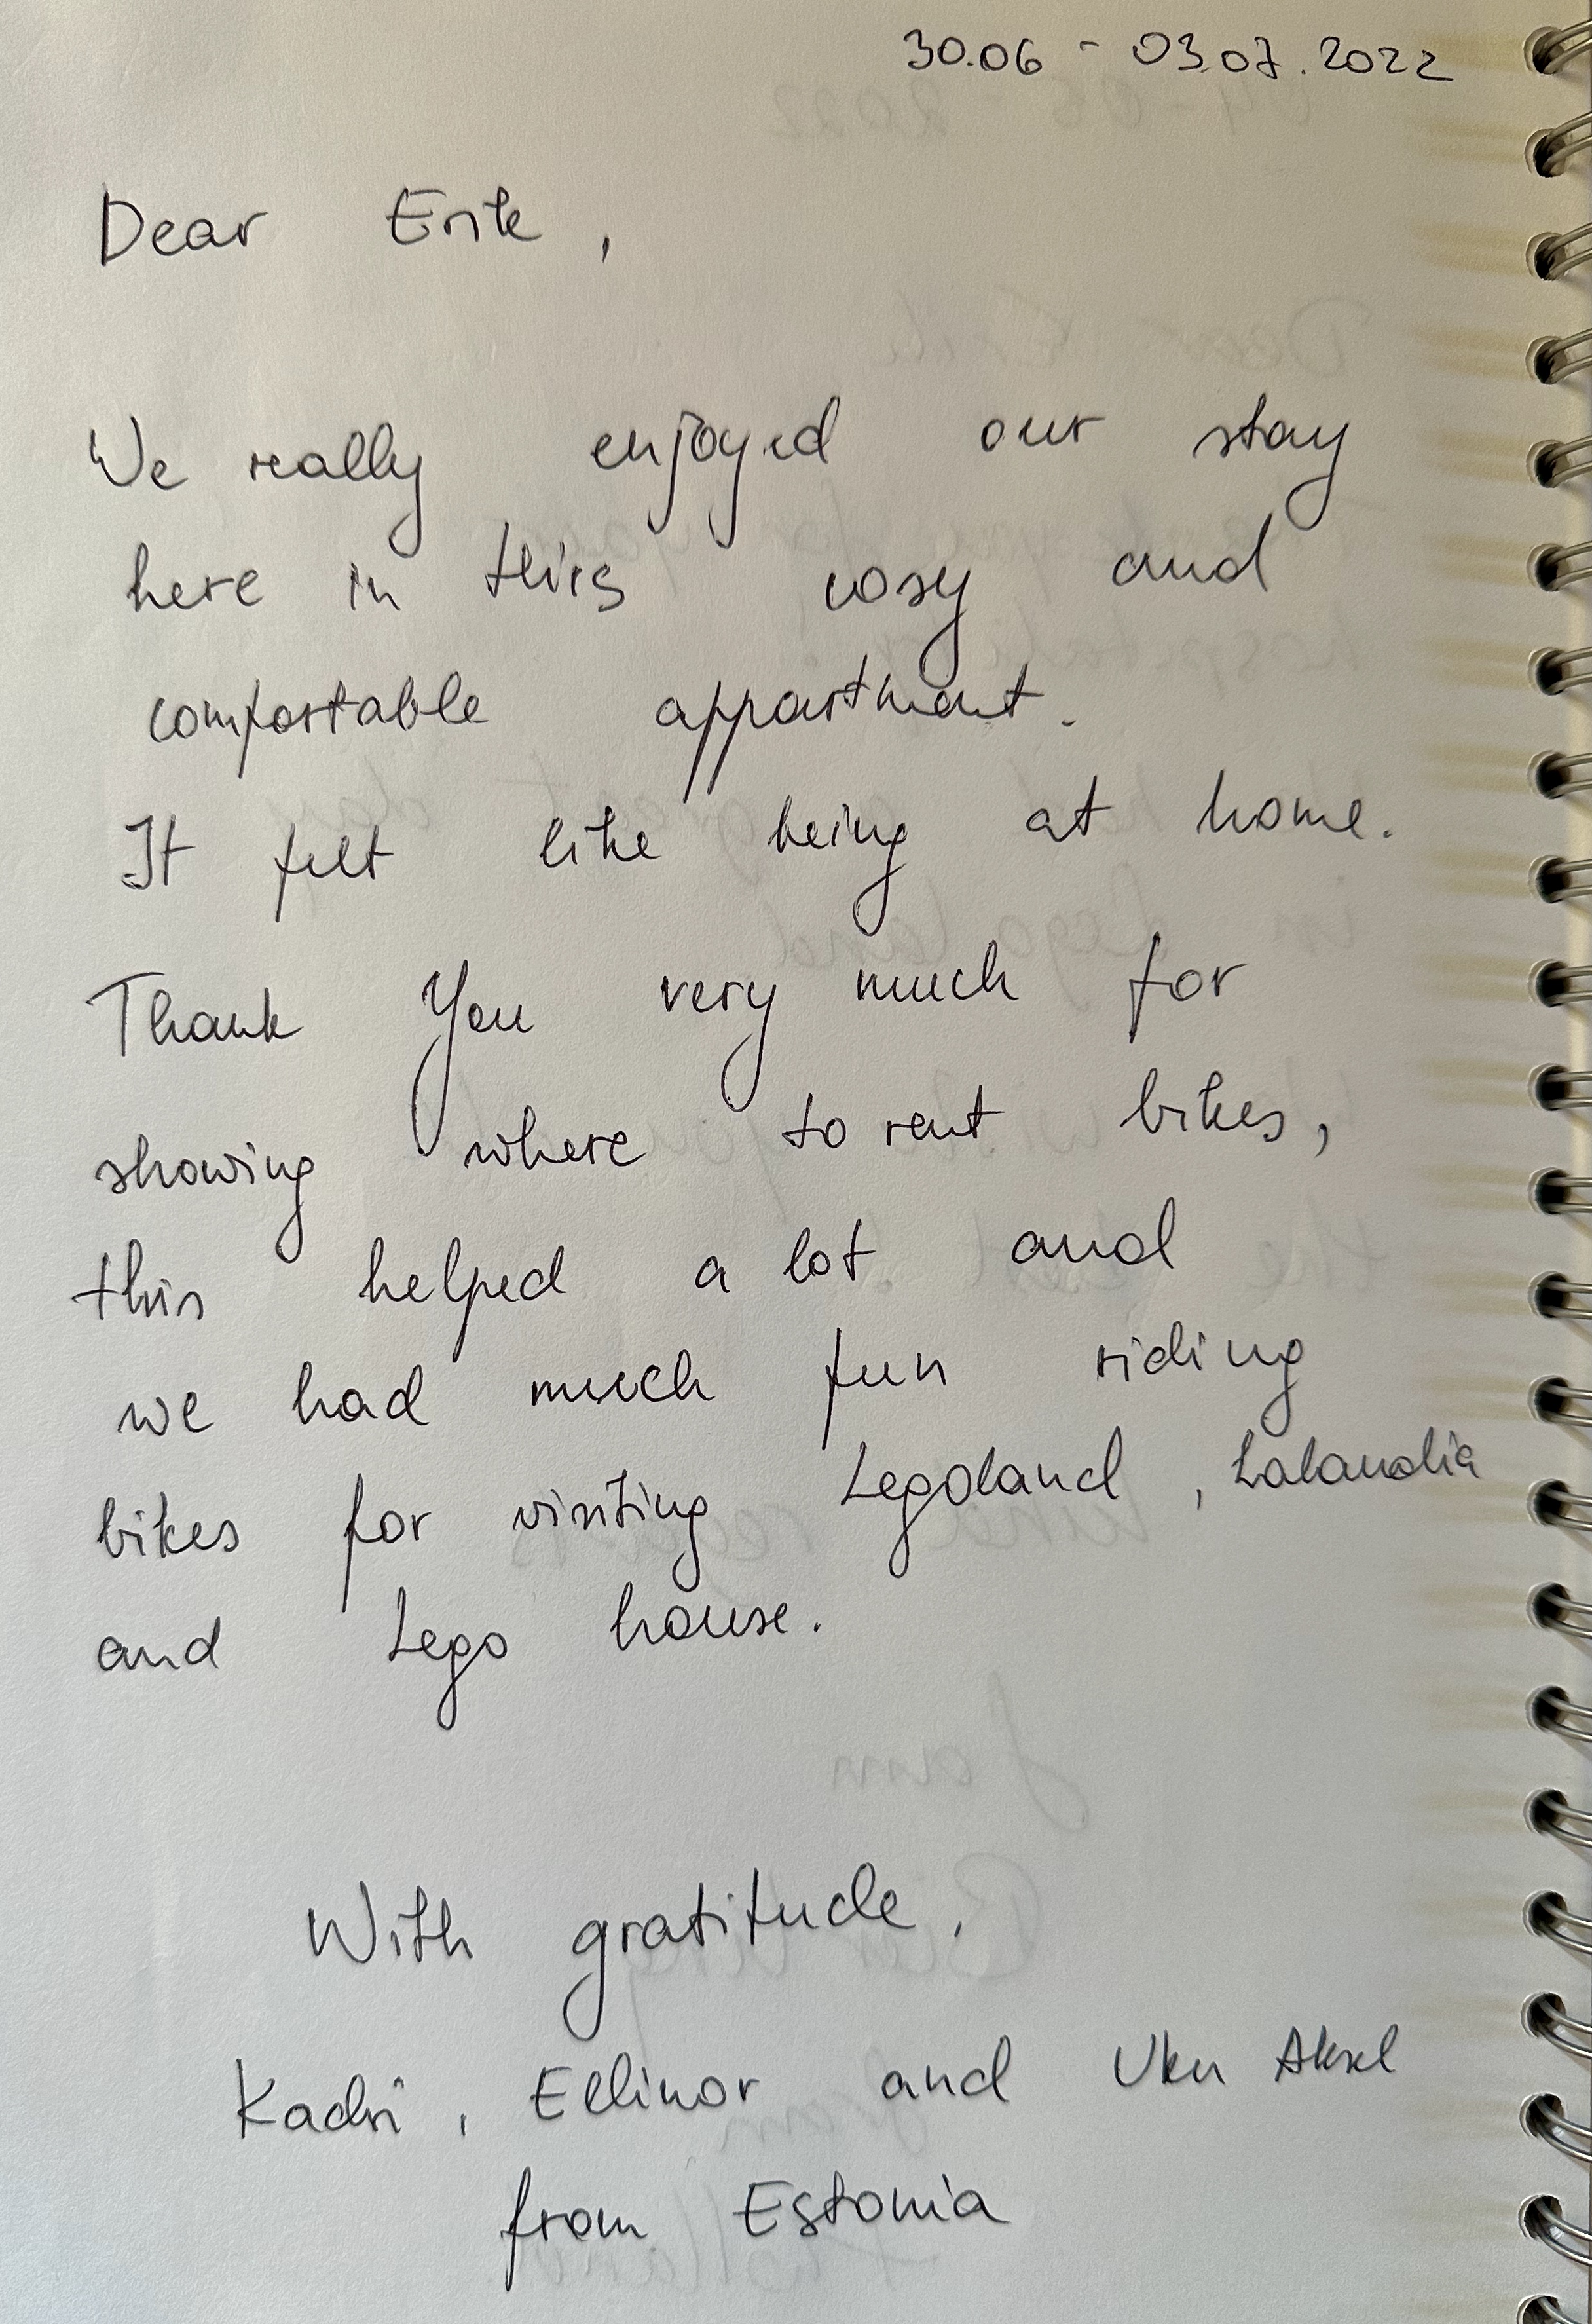 30.06 - 03.07.2022
Dear Erik,
We really enjoyed our stay
here in this cosy and
comfortable appartment.
It felt like being at home.
Thank You very much for
showing where to rent bikes,
this helped a lot and
we had much fun riding
bikes for visiting Legoland, Lalandia
and Lego house.
With gratitude,
Kadri, Ellinor and Uku Aksel
from Estonia